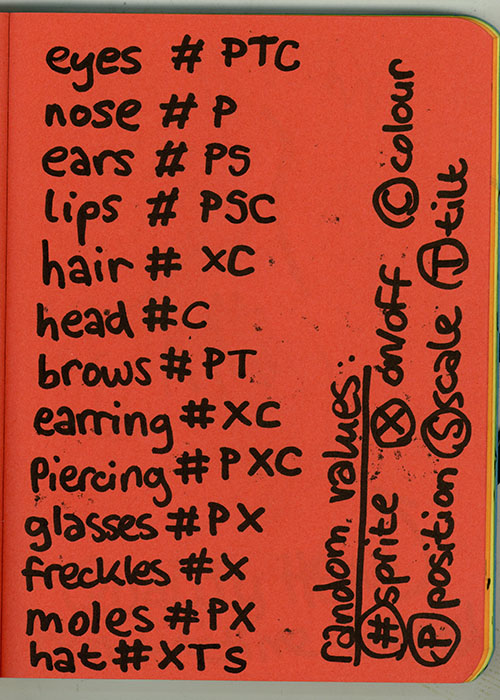 eyes # PTC
nose # P
ears # PS
lips # PSC
hair # XC
head # C
brows # PT
earring # XC
Piercing # PXC
glasses # PX
freckles # X
moles # PX
hat # XTS
random values:
# sprite X on/off C colour
P position S scale T tilt